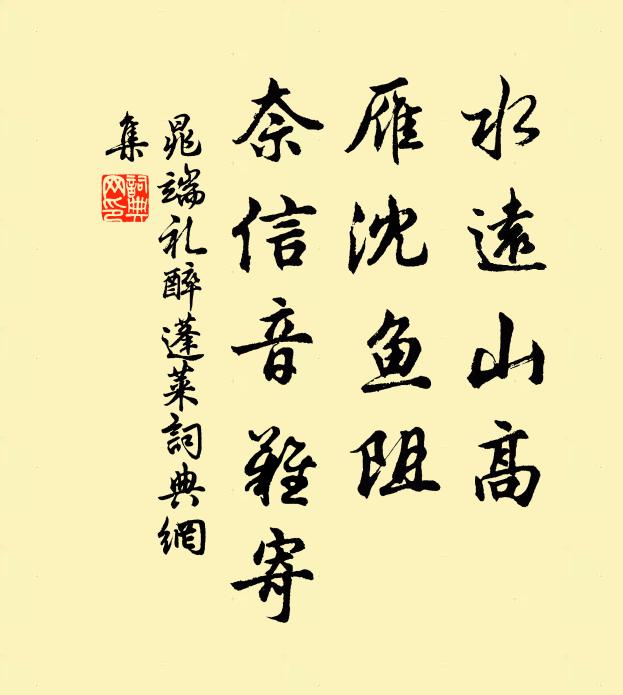 水遠山高
雁沈鱼阻
奈信音難寄
晁端礼醉蓬莱詞典網
集
詞典網印